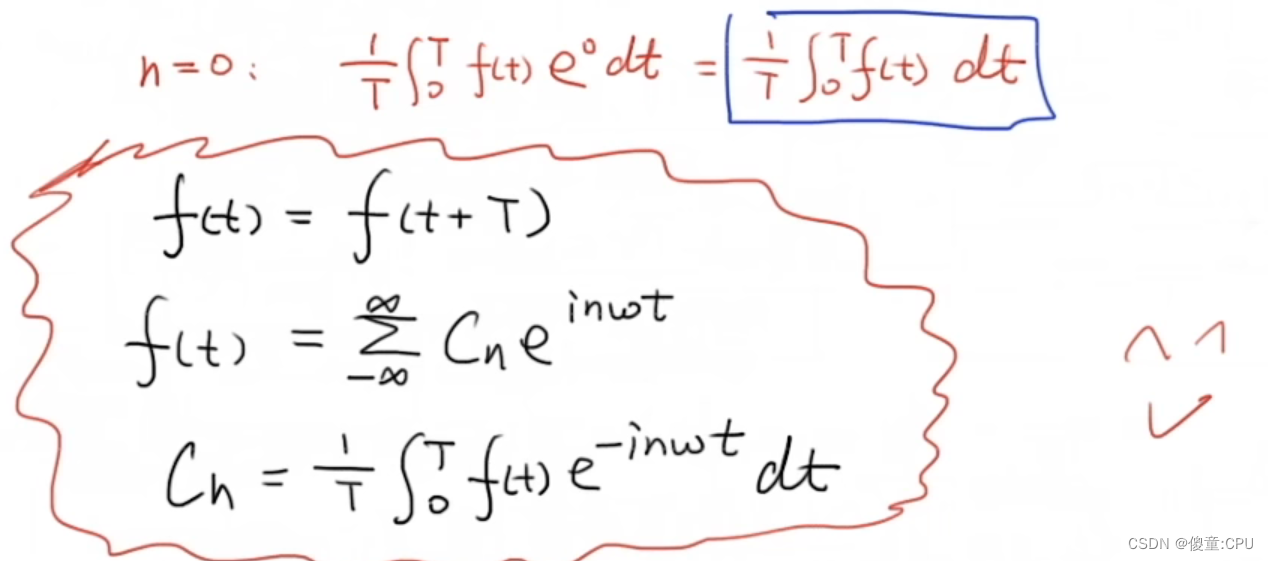 n=0: 1/T ∫₀ᵀ f(t) e⁰ dt = 1/T ∫₀ᵀ f(t) dt
f(t) = f(t+T)
f(t) = ∑_{-∞}^{∞} Cₙ e^{inωt}
Cₙ = 1/T ∫₀ᵀ f(t) e^{-inωt} dt
CSDN @傻童:CPU